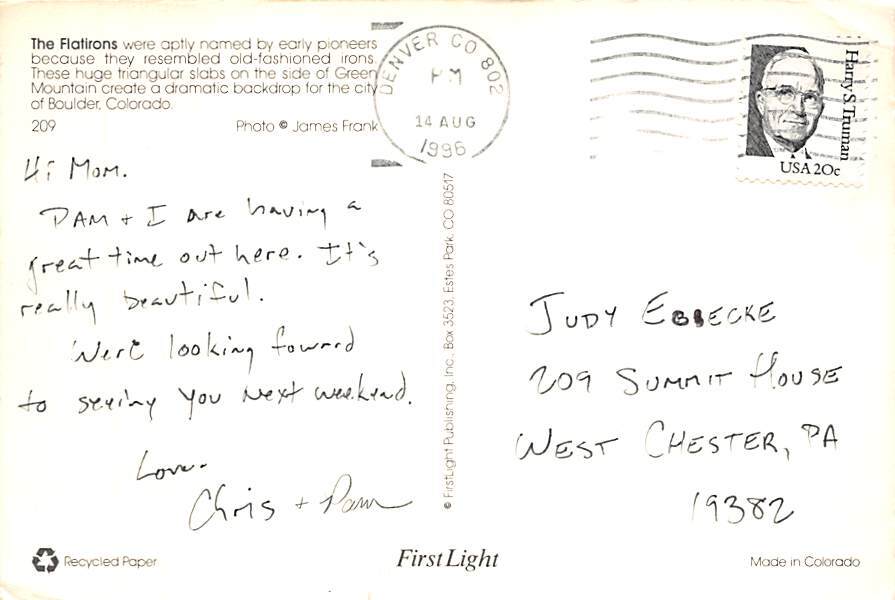 The Flatirons were aptly named by early pioneers
because they resembled old-fashioned irons.
These huge triangular slabs on the side of Green
Mountain create a dramatic backdrop for the city
of Boulder, Colorado.
209 Photo © James Frank
DENVER CO 802
PM
14 AUG
1996
Harry S. Truman
USA 20c
Hi Mom.
PAM + I are having a
great time out here. It's
really beautiful.
We're looking foward
to seeing you next weekend.
Love.
Chris + Pam
© FirstLight Publishing, Inc., Box 3523, Estes Park, CO 80517
JUDY EBBECKE
209 SUMMIT HOUSE
WEST CHESTER, PA
19382
Recycled Paper
First Light
Made in Colorado